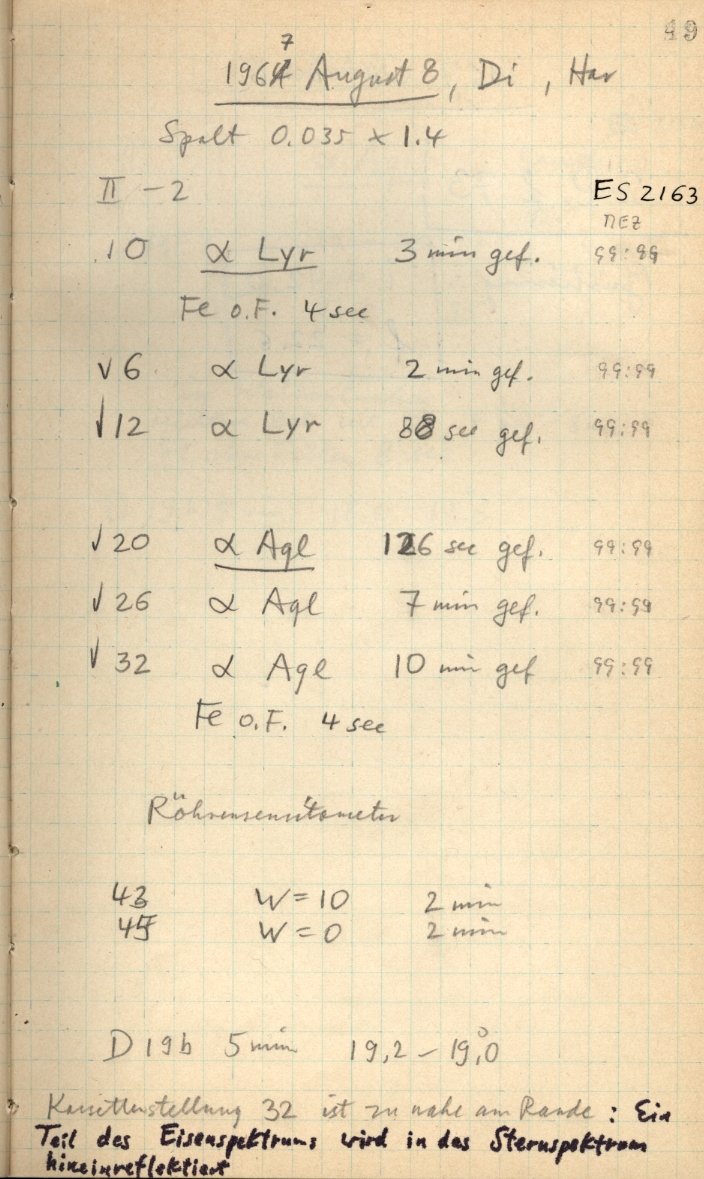 49
1967 August 8, Di, Har
Spalt 0.035 × 1.4
II - 2
ES 2163
MEZ
10 α Lyr 3 min gef. 99:99
Fe o.F. 4 sec
√ 6 α Lyr 2 min gef. 99:99
√ 12 α Lyr 88 sec gef. 99:99
√ 20 α Aql 126 sec gef. 99:99
√ 26 α Aql 7 min gef. 99:99
√ 32 α Aql 10 min gef 99:99
Fe o.F. 4 sec
Röhrensensitometer
43 W = 10 2 min
45 W = 0 2 min
D 19b 5 min 19,2 – 19,°0
Kassettenstellung 32 ist zu nahe am Rande : Ein
Teil des Eisenspektrums wird in das Sternspektrum
hineinreflektiert